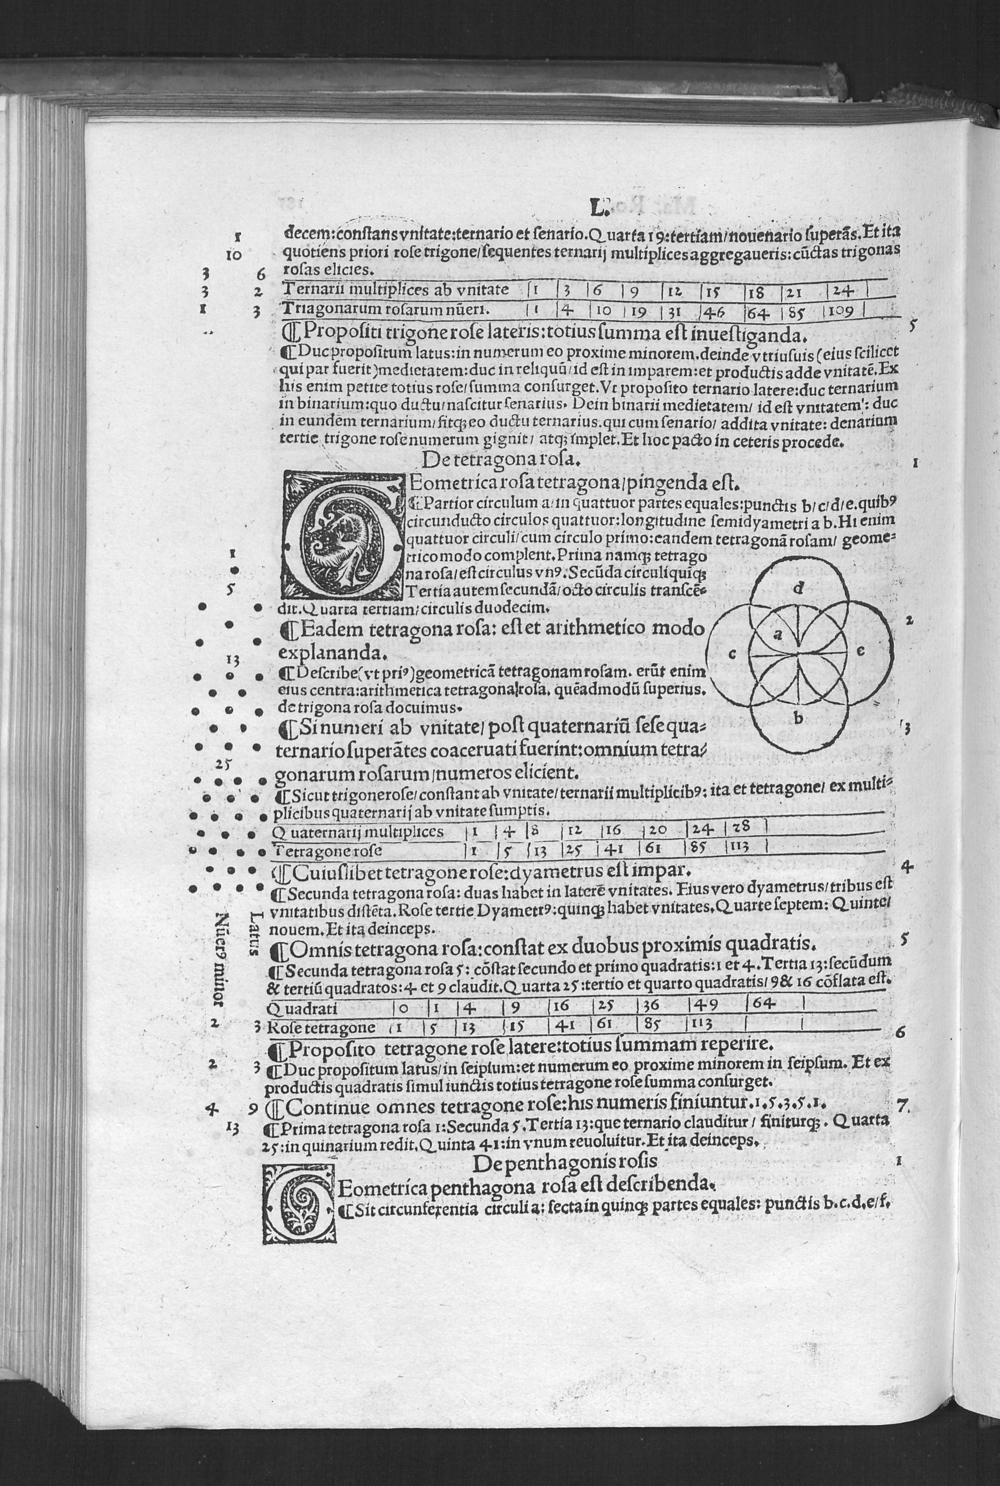 L.
decem:constans vnitate:ternario et senario.Quarta 19:tertiam/nouenario superãs.Et ita
quotiens priori rose trigone/sequentes ternarij multiplices aggregaueris:cũctas trigonas
rosas elicies.
1
10
3 6
3 2
1 3
Ternarii multiplices ab vnitate |1 |3 |6 |9 |12 |15 |18 |21 |24 |
Triagonarum rosarum nũeri. |1 |4 |10 |19 |31 |46 |64 |85 |109 |
¶Propositi trigone rose lateris:totius summa est inuestiganda. 5
¶Duc propositum latus:in numerum eo proxime minorem.deinde vtriusuis (eius scilicet
qui par fuerit)medietatem:duc in reliquũ/id est in imparem:et productis adde vnitatẽ.Ex
his enim petite totius rose/summa consurget.Vt proposito ternario latere:duc ternarium
in binarium:quo ductu/nascitur senarius. Dein binarii medietatem/ id est vnitatem: duc
in eundem ternarium/fitqꝫ eo ductu ternarius.qui cum senario/ addita vnitate: denarium
tertie trigone rose numerum gignit/ atqꝫ implet.Et hoc pacto in ceteris procede.
De tetragona rosa. 1
GEometrica rosa tetragona/pingenda est.
¶Partior circulum a/in quattuor partes equales:punctis b/c/d/e.quibꝰ
circunducto circulos quattuor:longitudine semidyametri a b.Hi enim
quattuor circuli/cum circulo primo:eandem tetragonã rosam/ geome=
trico modo complent.Prima namqꝫ tetrago
na rosa/est circulus vnꝰ.Secũda circuli quiqꝫ
Tertia autem secundã/octo circulis transcẽ=
dit.Quarta tertiam/circulis duodecim.
d
a
c
e
b
1
5
13
25
¶Eadem tetragona rosa: est et arithmetico modo 2
explananda.
¶Describe(vt priꝰ)geometricã tetragonam rosam. erũt enim
eius centra:arithmetica tetragona rosa. quẽadmodũ superius.
de trigona rosa docuimus.
¶Si numeri ab vnitate/ post quaternariũ sese qua= 3
ternario superãtes coaceruati fuerint:omnium tetra=
gonarum rosarum/numeros elicient.
¶Sicut trigone rose/constant ab vnitate/ternarii multiplicibꝰ: ita et tetragone/ ex multi=
plicibus quaternarij ab vnitate sumptis.
Quaternarij multiplices |1 |4 |8 |12 |16 |20 |24 |28 |
Tetragone rose |1 |5 |13 |25 |41 |61 |85 |113 |
¶Cuiuslibet tetragone rose:dyametrus est impar. 4
¶Secunda tetragona rosa: duas habet in laterẽ vnitates. Eius vero dyametrus/tribus est
vnitatibus distẽta.Rose tertie Dyametrꝰ:quinqꝫ habet vnitates.Quarte septem: Quinte/
nouem.Et ita deinceps.
¶Omnis tetragona rosa:constat ex duobus proximis quadratis. 5
¶Secunda tetragona rosa 5: cõstat secundo et primo quadratis:1 et 4.Tertia 13:secũdum
& tertiũ quadratos:4 et 9 claudit.Quarta 25:tertio et quarto quadratis/9& 16 cõflata est.
Quadrati |0 |1 |4 |9 |16 |25 |36 |49 |64 |
Rose tetragone |1 |5 |13 |15 |41 |61 |85 |113 | |
Latus
Nũerꝰ minor
2 3
2 3
4 9
13
¶Proposito tetragone rose latere:totius summam reperire. 6
¶Duc propositum latus/in seipsum:et numerum eo proxime minorem in seipsum. Et ex
productis quadratis simul iunctis totius tetragone rose summa consurget.
¶Continue omnes tetragone rose:his numeris finiuntur.1.5.3.5.1. 7.
¶Prima tetragona rosa 1:Secunda 5.Tertia 13:que ternario clauditur / finiturqꝫ. Quarta
25:in quinarium redit.Quinta 41:in vnum reuoluitur.Et ita deinceps.
De penthagonis rosis 1
GEometrica penthagona rosa est describenda.
¶Sit circunferentia circuli a: secta in quinqꝫ partes equales: punctis b.c.d.e/f.